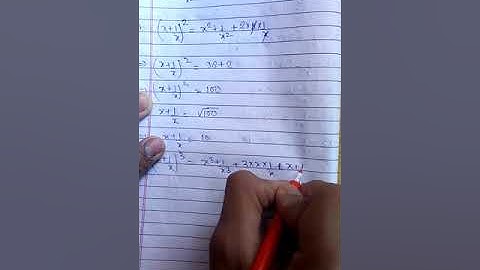 (x+1/x)² = x²+1/x² + 2x x x 1/x
⇒ (x+1/x)² = 98+2
⇒ (x+1/x)² = 100
x+1/x = √100
⇒ x+1/x = 10
)³ = x³+1/x³ + 3x x x 1/x x+1